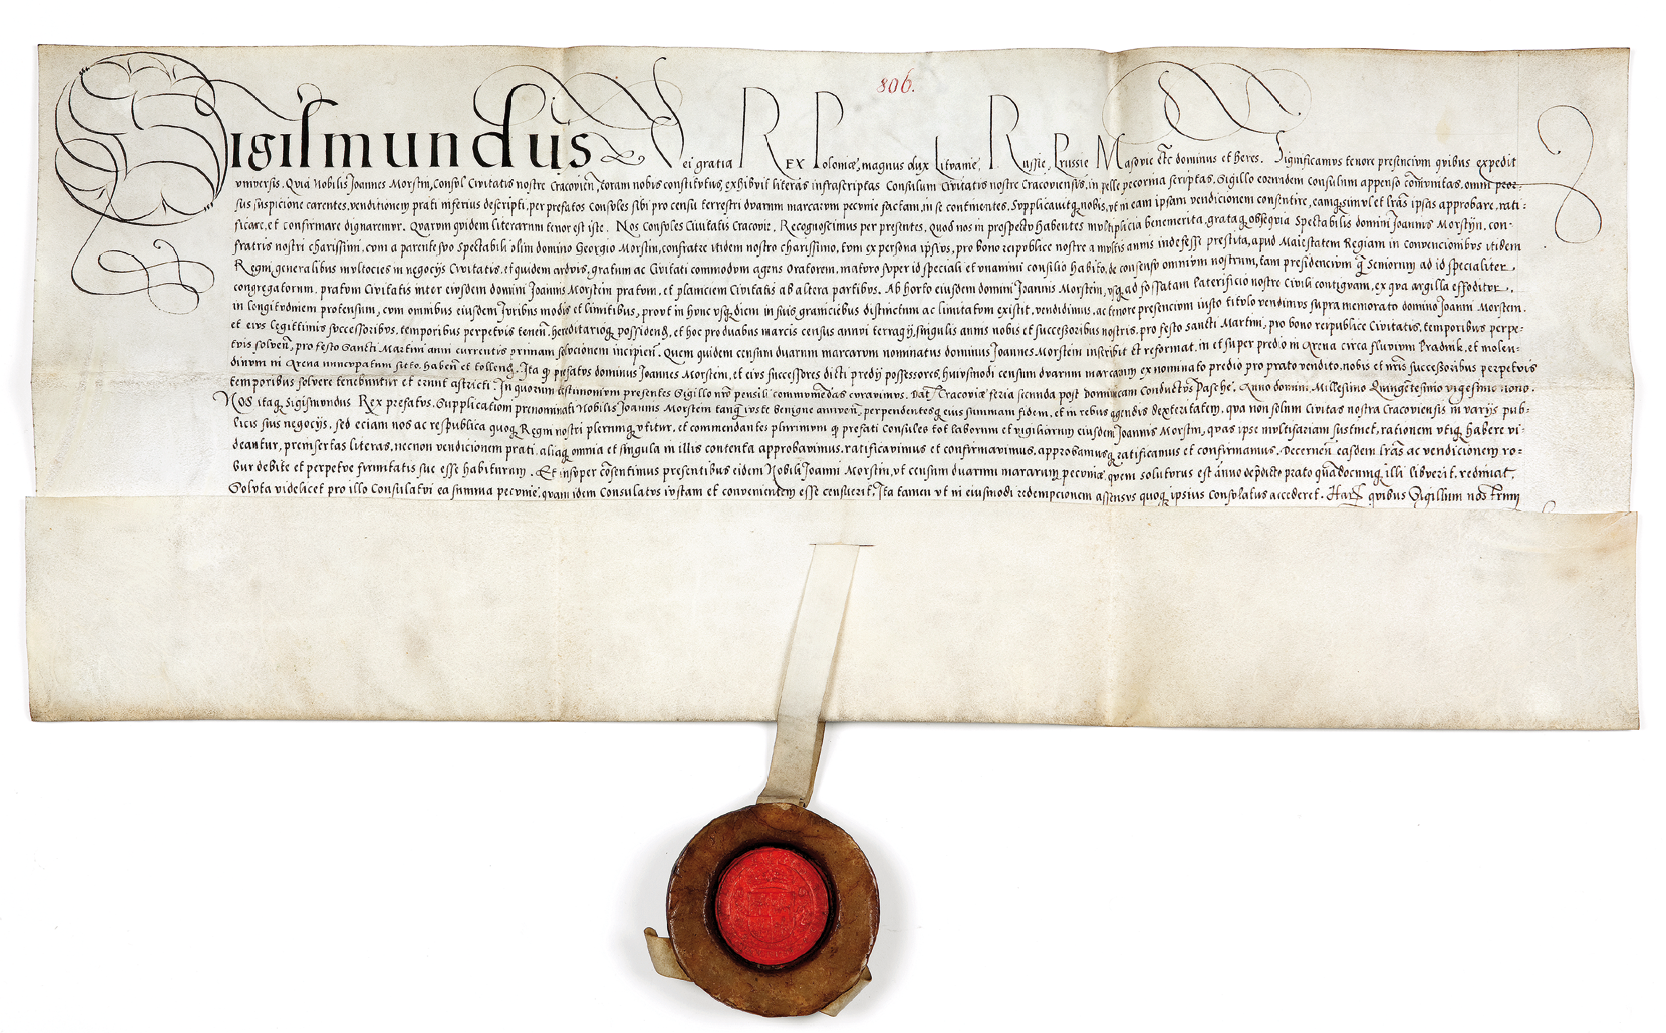 806.
Sigismundus Dei gratia REX Poloniæ, magnus dux Litvanie, Russie, Prussie Masovie etc dominus et heres. Significamus tenore presencium quibus expedit
vniversis. Quia Nobilis Joannes Morstin, Consul Civitatis nostre Cracovien, coram nobis constitutus, exhibuit literas infrascriptas Consulum Civitatis nostre Cracoviensis, in pelle pecorina scriptas, Sigillo eorundem consulum appenso communitas, omni pror-
sus suspicione carentes, venditionem prati inferius descripti, per prefatos Consules sibi pro censu terrestri duarum marcarum pecunie factam, in se continentes. Supplicavitq nobis, vt in eam ipsam vendicionem consentire, eamq simul et lras ipsas approbare, rati-
ficare, et confirmare dignaremur. Quarum quidem literarum tenor est iste. Nos Consules Civitatis Cracovie. Recognoscimus per presentes, Quod nos in prospectu habentes multiplicia benemerita, grataq obsequia Spectabilis domini Joannis Morstijn, con-
fratris nostri charissimi, cum a parente suo Spectabili olim domino Georgio Morstin, confratre itidem nostro charissimo, tum ex persona ipsius, pro bono reipublice nostre a multis annis indefesse prestita, apud Maiestatem Regiam in convencionibus itidem
Regni generalibus multocies in negocijs Civitatis, et quidem arduis, gratum ac Civitati commodum agens Oratorem, maturo super id speciali et vnanimi consilio habito, de consensu omnium nostrum, tam presidencium q Seniorum ad id specialiter
congregatorum, pratum Civitatis inter eiusdem domini Joannis Morstein pratum, et planiciem Civitatis ab altera partibus. Ab horto eiusdem domini Joannis Morstein, vsq ad fossatam laterificio nostre Civili contiguam, ex qua argilla effoditur,
in longitudniem protensum, cum omnibus eiusdem Juribus modis et limitibus, prout in hunc vsq diem in suis graniciebus distinctum ac limitatum existit, vendidimus, ac tenore presencium iusto titulo vendimus supra memorato domino Joanni Morstein,
et eius legittimis successoribus, temporibus perpetuis tenen, hereditarioq possidend, et hoc pro duabus marcis census annui terragij, singulis annis nobis et successoribus nostris, pro festo sancti Martini, pro bono reipublice Civitatis, temporibus perpe-
tuis solven, pro festo Sancti Martini anni currentis primam solucionem incipien. Quem quidem censum duarum marcarum nominatus dominus Joannes Morstein inscribit et reformat, in et super predio in Arena circa fluvium Pradnik, et molen-
dinum in Arena nuncupatum Sieto, haben et tollend. Ita q prefatus dominus Joannes Morstein, et eius successores dicti predij possessores, huiusmodi censum duarum marcarum ex nominato predio pro prato vendito, nobis et nris successoribus perpetuis
temporibus solvere tenebuntur et erunt astricti. In quorum testimonium presentes Sigillo nro pensili communiendas curavimus. Dat Cracovie feria secunda post Dominicam Conductus Pasche. Anno domini. Millesimo Quingentesimo vigesimo nono.
NOS itaq Sigismundus Rex prefatus, Supplicationi prenominati Nobilis Joannis Morstein tanq iuste benigne annuen, perpendentesq eius summam fidem, et in rebus agendis dexteritatem, qua non solum Civitas nostra Cracoviensis in varijs pub-
licis suis negocijs, sed eciam nos ac respublica quoq Regni nostri plerunq vtitur, et commendantes plurimum q prefati Consules tot laborum et vigiliarum eiusdem Joannis Morstin, quas ipse multifariam sustinet, rationem vtiq habere vi-
deantur, preinsertas literas, necnon vendicionem prati, aliaq omnia et singula in illis contenta approbavimus, ratificavimus et confirmavimus, approbamusq ratificamus et confirmamus. Decernen easdem lras ac vendicionem ro-
bur debite et perpetue firmitatis sue esse habituram. Et insuper consentimus presentibus eidem Nobili Joanni Morstin, vt censum duarum marcarum pecuniæ, quem soluturus est anno prato quandocunq illi libuerit, redimat,
Soluta videlicet pro illo Consulatui ea summa pecunie, quam idem Consulatus iustam et convenientem esse censuerit. Ita tamen vt in eiusmodi redempcionem assensus quoq ipsius Consulatus accederet. Harum quibus Sigillum nostrum